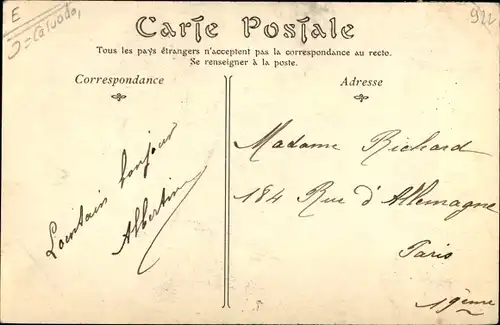 E
J = Calvados
922
Carte Postale
Tous les pays étrangers n'acceptent pas la correspondance au recto.
Se renseigner à la poste.
Correspondance
Lointain bonjour
Albertine
Adresse
Madame Richard
184 Rue d'Allemagne
Paris
19ème